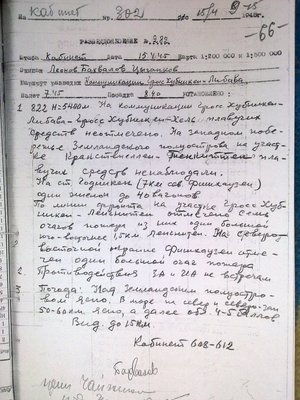 На Кабинет № 202 на 15/4 9-15 1945 г.
-66-
РАЗВЕДДОНЕСЕНИЕ № 232
Штаб Кабинет Дата 15.4.45 Карта 1:200 000 и 500 000
Экипаж Леонов Бахвалов Цыганков
Маршрут разведки Коммуникации Гросс Хубникен-Либава
Взлет 7.45 Посадка 8.40 УСТАНОВЛЕНО:
1 822 Н=5400м На коммуникации Гросс Хубникен-
Либава-Гросс Хубникен-Хель плавучих
средств неотмечено. На западном побе-
режье Земландского полуострова на участ-
ке пла-
вучих средств ненаблюдали.
На ст. (7км сев. Фишхаузен)
один эшелон до 40 вагонов
По линии фронта на участке Гросс Хуб-
никен- отмечено семь
очагов пожара из них один большой
юго-восточнее 1,5км На северо-
восточной окраине Фишхаузен отме-
чен один большой очаг пожара
2 Противодействия ЗА и ИА не встречали
3 Погода: Над Земландским полуостро-
вом ясно. В море на север и северо-зап
50-60км ясно, а далее обл. 4-5 баллов
Вид. до 15км
Кабинет 608-612
Бахвалов